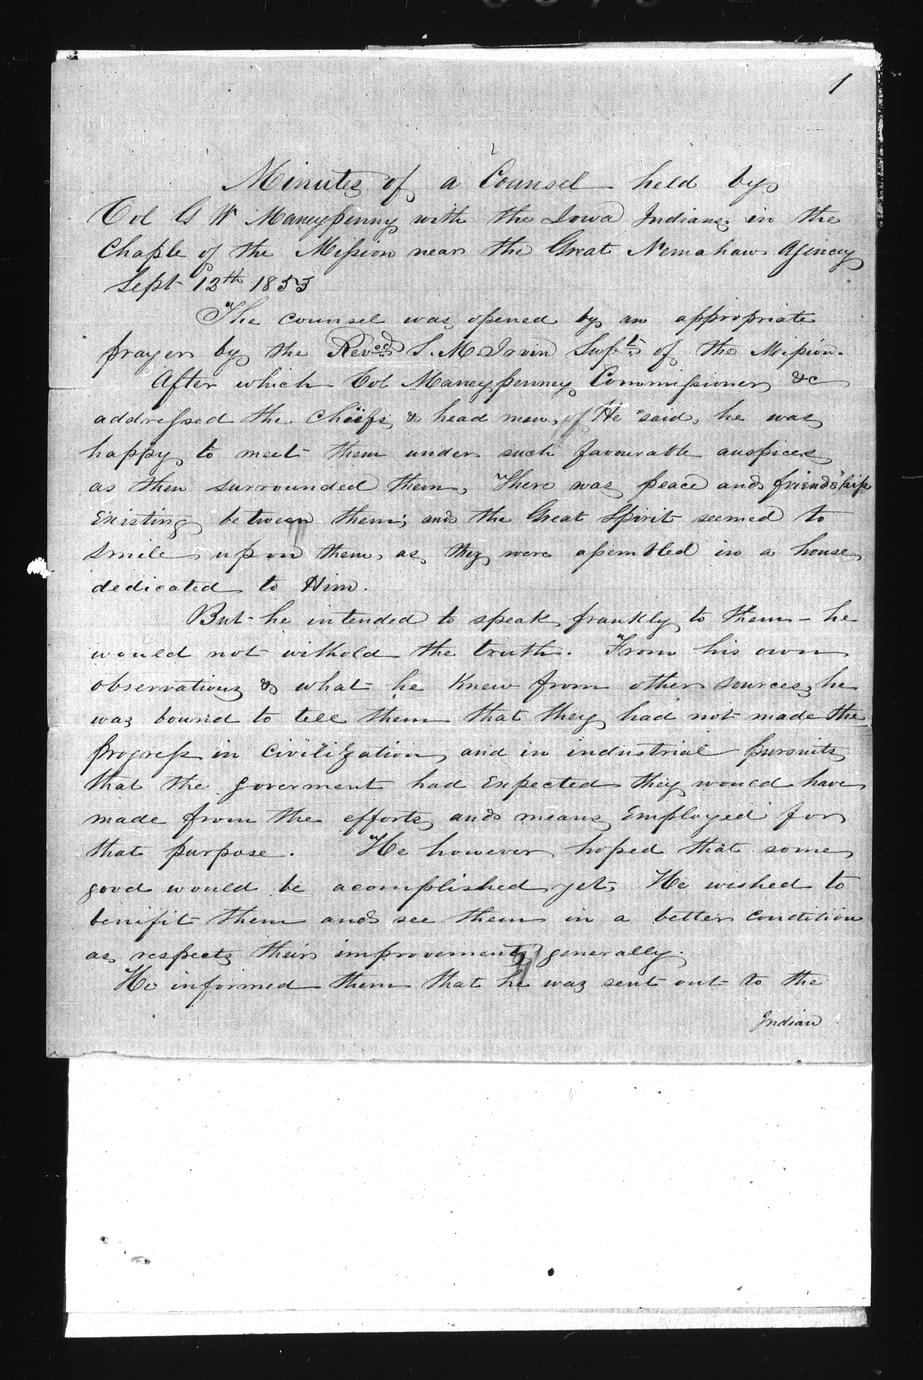 1
Minutes of a Counsel held by
Col G W Maneypenny with the Iowa Indians in the
Chaple of the Mission near the Great Nemahaw Agency
Sept 12th 1853
The counsel was opened by an appropriate
prayer by the Reved S. M. Irvin Supt of the Mission.
After which Col Maneypenney Commissioner &c
addressed the Chiefs & head men, He said, he was
happy to meet them under such favourable auspices
as then surrounded them, There was peace and friendship
Existing between them; and the Great Spirit seemed to
Smile upon them, as they were assembled in a house
dedicated to Him.
But he intended to speak frankly to them - he
would not withold the truth. From his own
observations & what he Knew from other sources, he
was bound to tell them that they had not made the
progress in civilization, and in industrial pursuits
that the goverment had Expected they would have
made from the efforts and means Employed for
that purpose. He however hoped that some
good would be acomplished yet, He wished to
benifit them and see them in a better condition
as respects their improvements generally.
He informed them that he was sent out to the
Indian